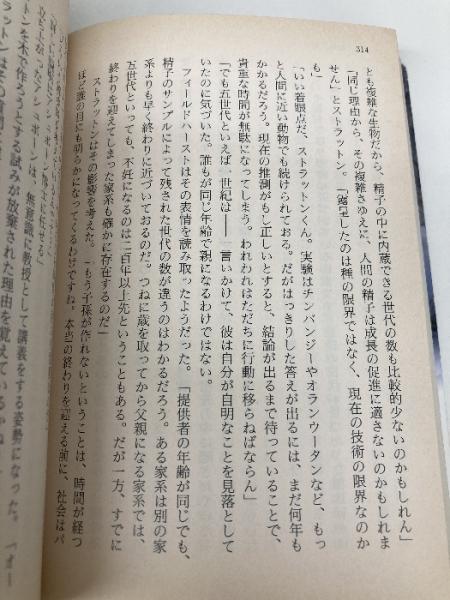 314
とも複雑な生物だから、精子の中に内蔵できる世代の数も比較的少ないのかもしれん」
「同じ理由から、その複雑さゆえに、人間の精子は成長の促進に適さないのかもしれま
せん」とストラットン。「露呈したのは種の限界ではなく、現在の技術の限界なのか
も」
「いい着眼点だ、ストラットンくん。実験はチンパンジーやオランウータンなど、もっ
と人間に近い動物でも続けられておる。だがはっきりした答えが出るには、まだ何年も
かかるだろう。現在の推測がもし正しいとすると、結論が出るまで待っていることで、
貴重な時間が無駄になってしまう。われわれはただちに行動に移らねばならん」
「でも五世代といえば一世紀は――」言いかけて、彼は自分が自明なことを見落として
いたのに気づいた。誰もが同じ年齢で親になるわけではない。
フィールドハーストはその表情を読み取ったようだった。「提供者の年齢が同じでも、
精子のサンプルによって残された世代の数が違うのはわかるだろう。ある家系は別の家
系よりも早く終わりに近づいておるのだ。つねに歳を取ってから父親になる家系では、
五世代といっても、不妊になるのは二百年以上先ということもある。だが一方、すでに
終わりを迎えてしまった家系も確かに存在するのだ」
ストラットンはその影響を考えた。「もう子孫が作れないということは、時間が経つ
ほど誰の目にも明らかになってくるわけですね。本当の終わりを迎える前に、社会はパ
立ち上がったアシュボーンは、無意識に教授として講義をする姿勢になった。「
トンを木で作ろうとする試みが放棄された理由を覚えているかね